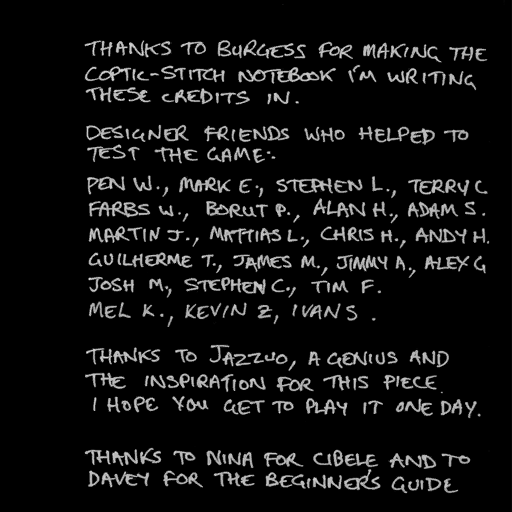 THANKS TO BURGESS FOR MAKING THE
COPTIC-STITCH NOTEBOOK I'M WRITING
THESE CREDITS IN.
DESIGNER FRIENDS WHO HELPED TO
TEST THE GAME:
PEN W., MARK E., STEPHEN L., TERRY C
FARBS W., BORUT P., ALAN H., ADAM S.
MARTIN J., MATTIAS L., CHRIS H., ANDY H.
GUILHERME T., JAMES M., JIMMY A., ALEX G
JOSH M., STEPHEN C., TIM F.
MEL K., KEVIN Z, IVAN S.
THANKS TO JAZZUO, A GENIUS AND
THE INSPIRATION FOR THIS PIECE.
I HOPE YOU GET TO PLAY IT ONE DAY.
THANKS TO NINA FOR CIBELE AND TO
DAVEY FOR THE BEGINNER'S GUIDE